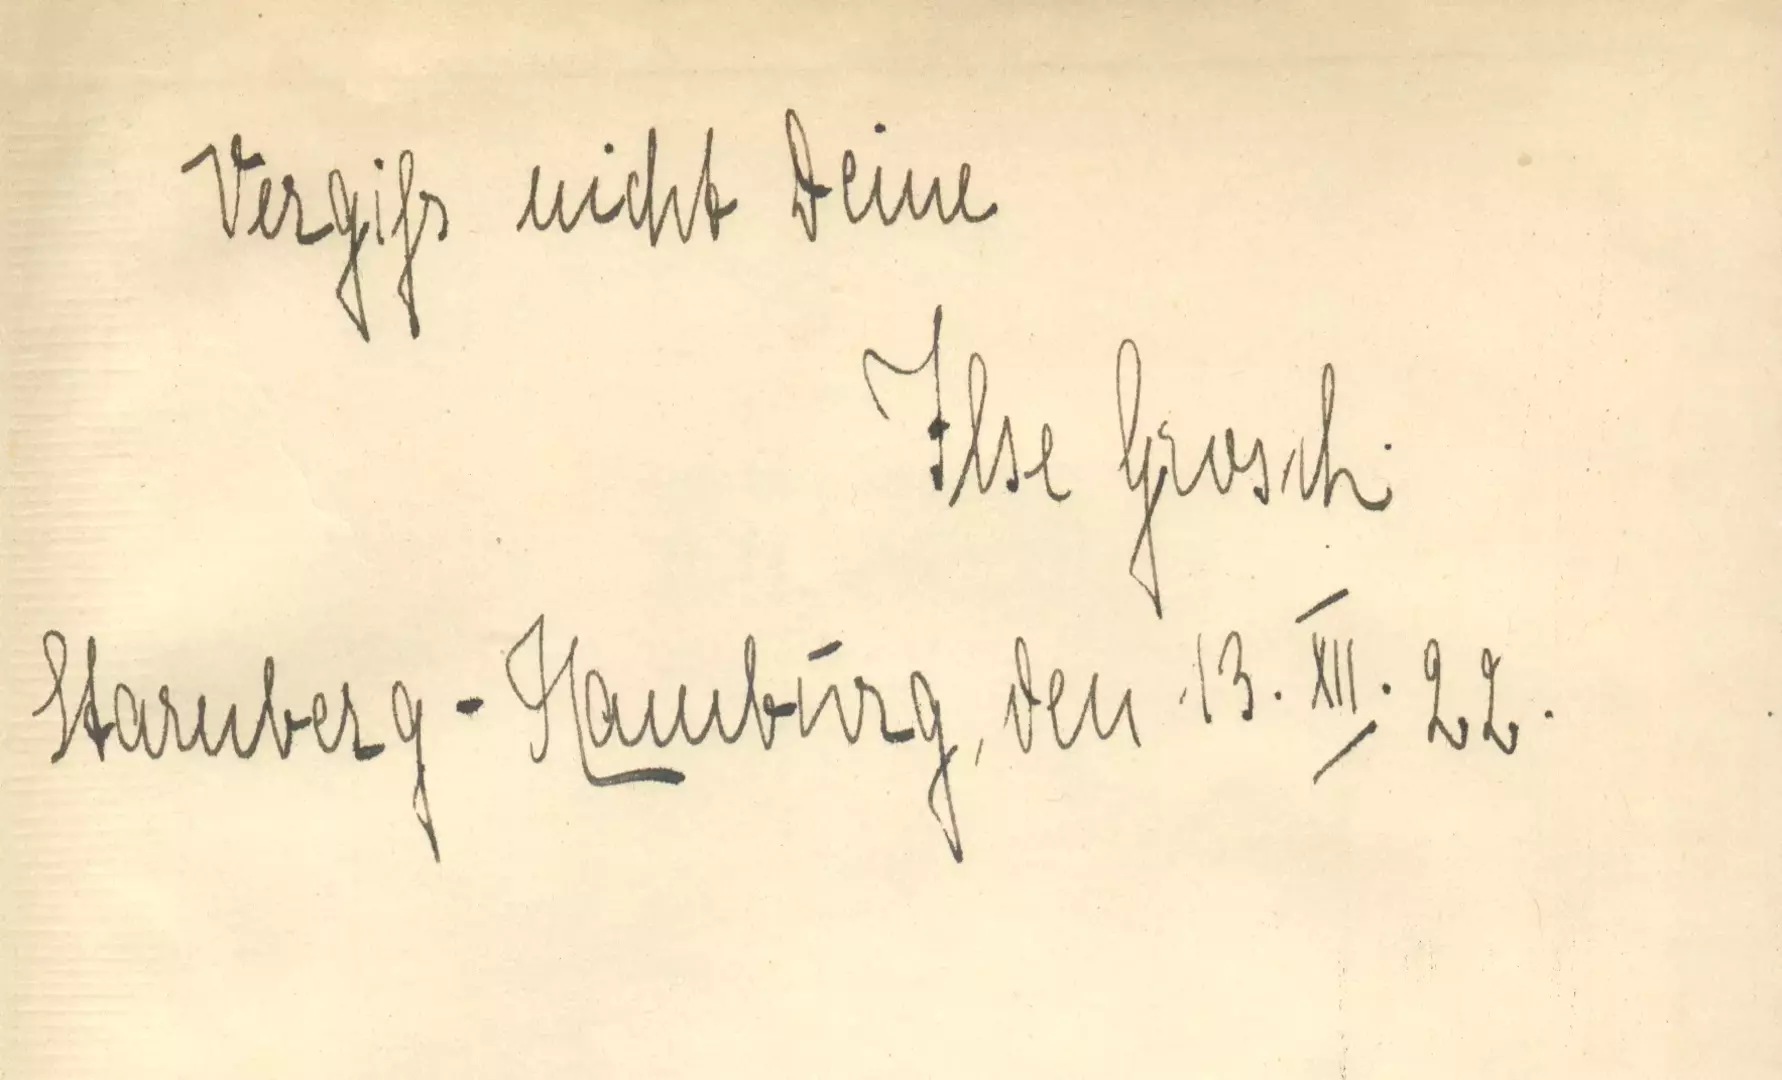 Vergiss nicht Deine
Ilse Grosch.
Starnberg - Hamburg, den 13. XII. 22.